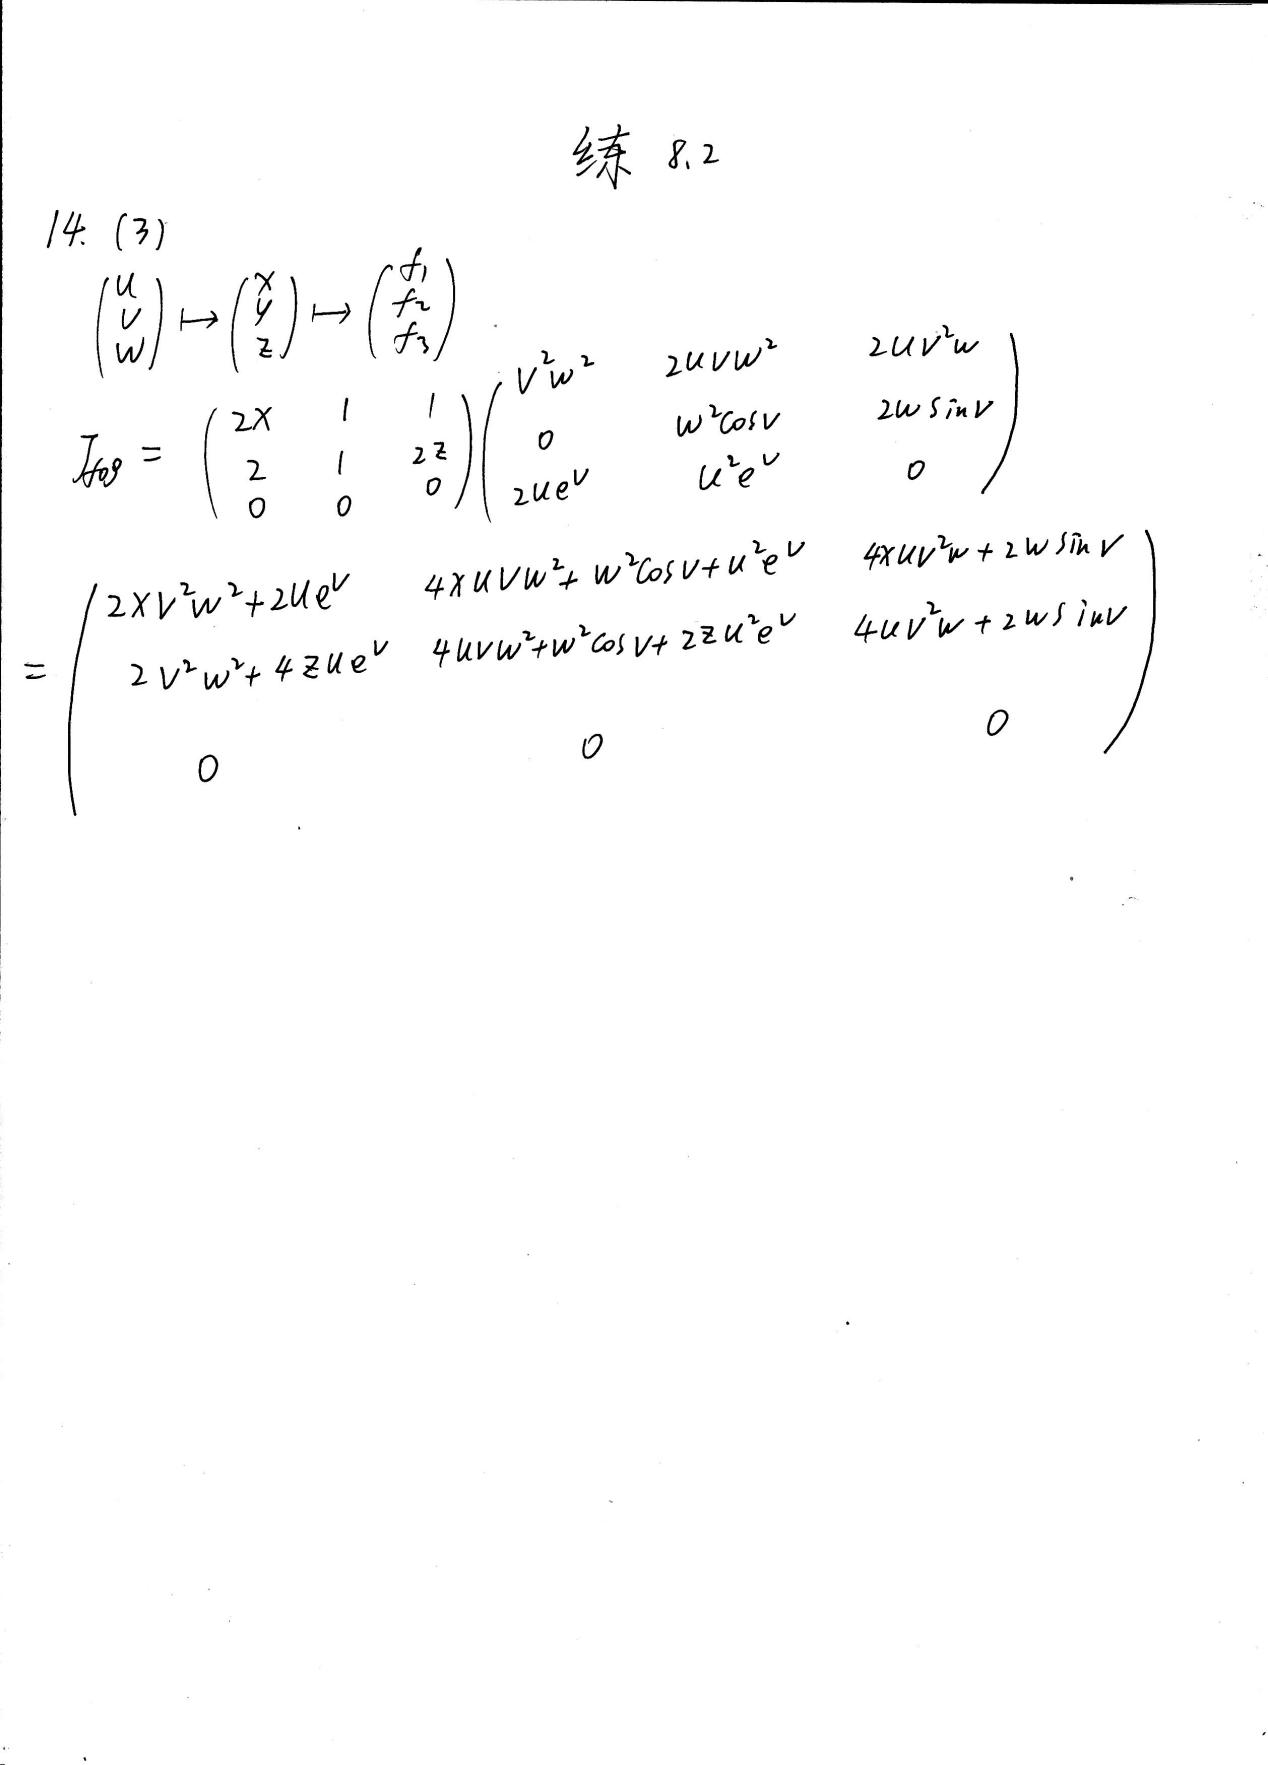 练 8.2
14. (3)
(u v w) ↦ (x y z) ↦ (f₁ f₂ f₃)
J_{f∘g} = (2x 1 1; 2 1 2z; 0 0 0) (v²w² 2uvw² 2uv²w; 0 w²cosv 2w sinv; 2ue^v u²e^v 0)
= (2xv²w²+2ue^v 4xuvw²+w²cosv+u²e^v 4xuv²w+2w sinv
2v²w²+4zue^v 4uvw²+w²cosv+2zu²e^v 4uv²w+2w sinv
0 0 0)